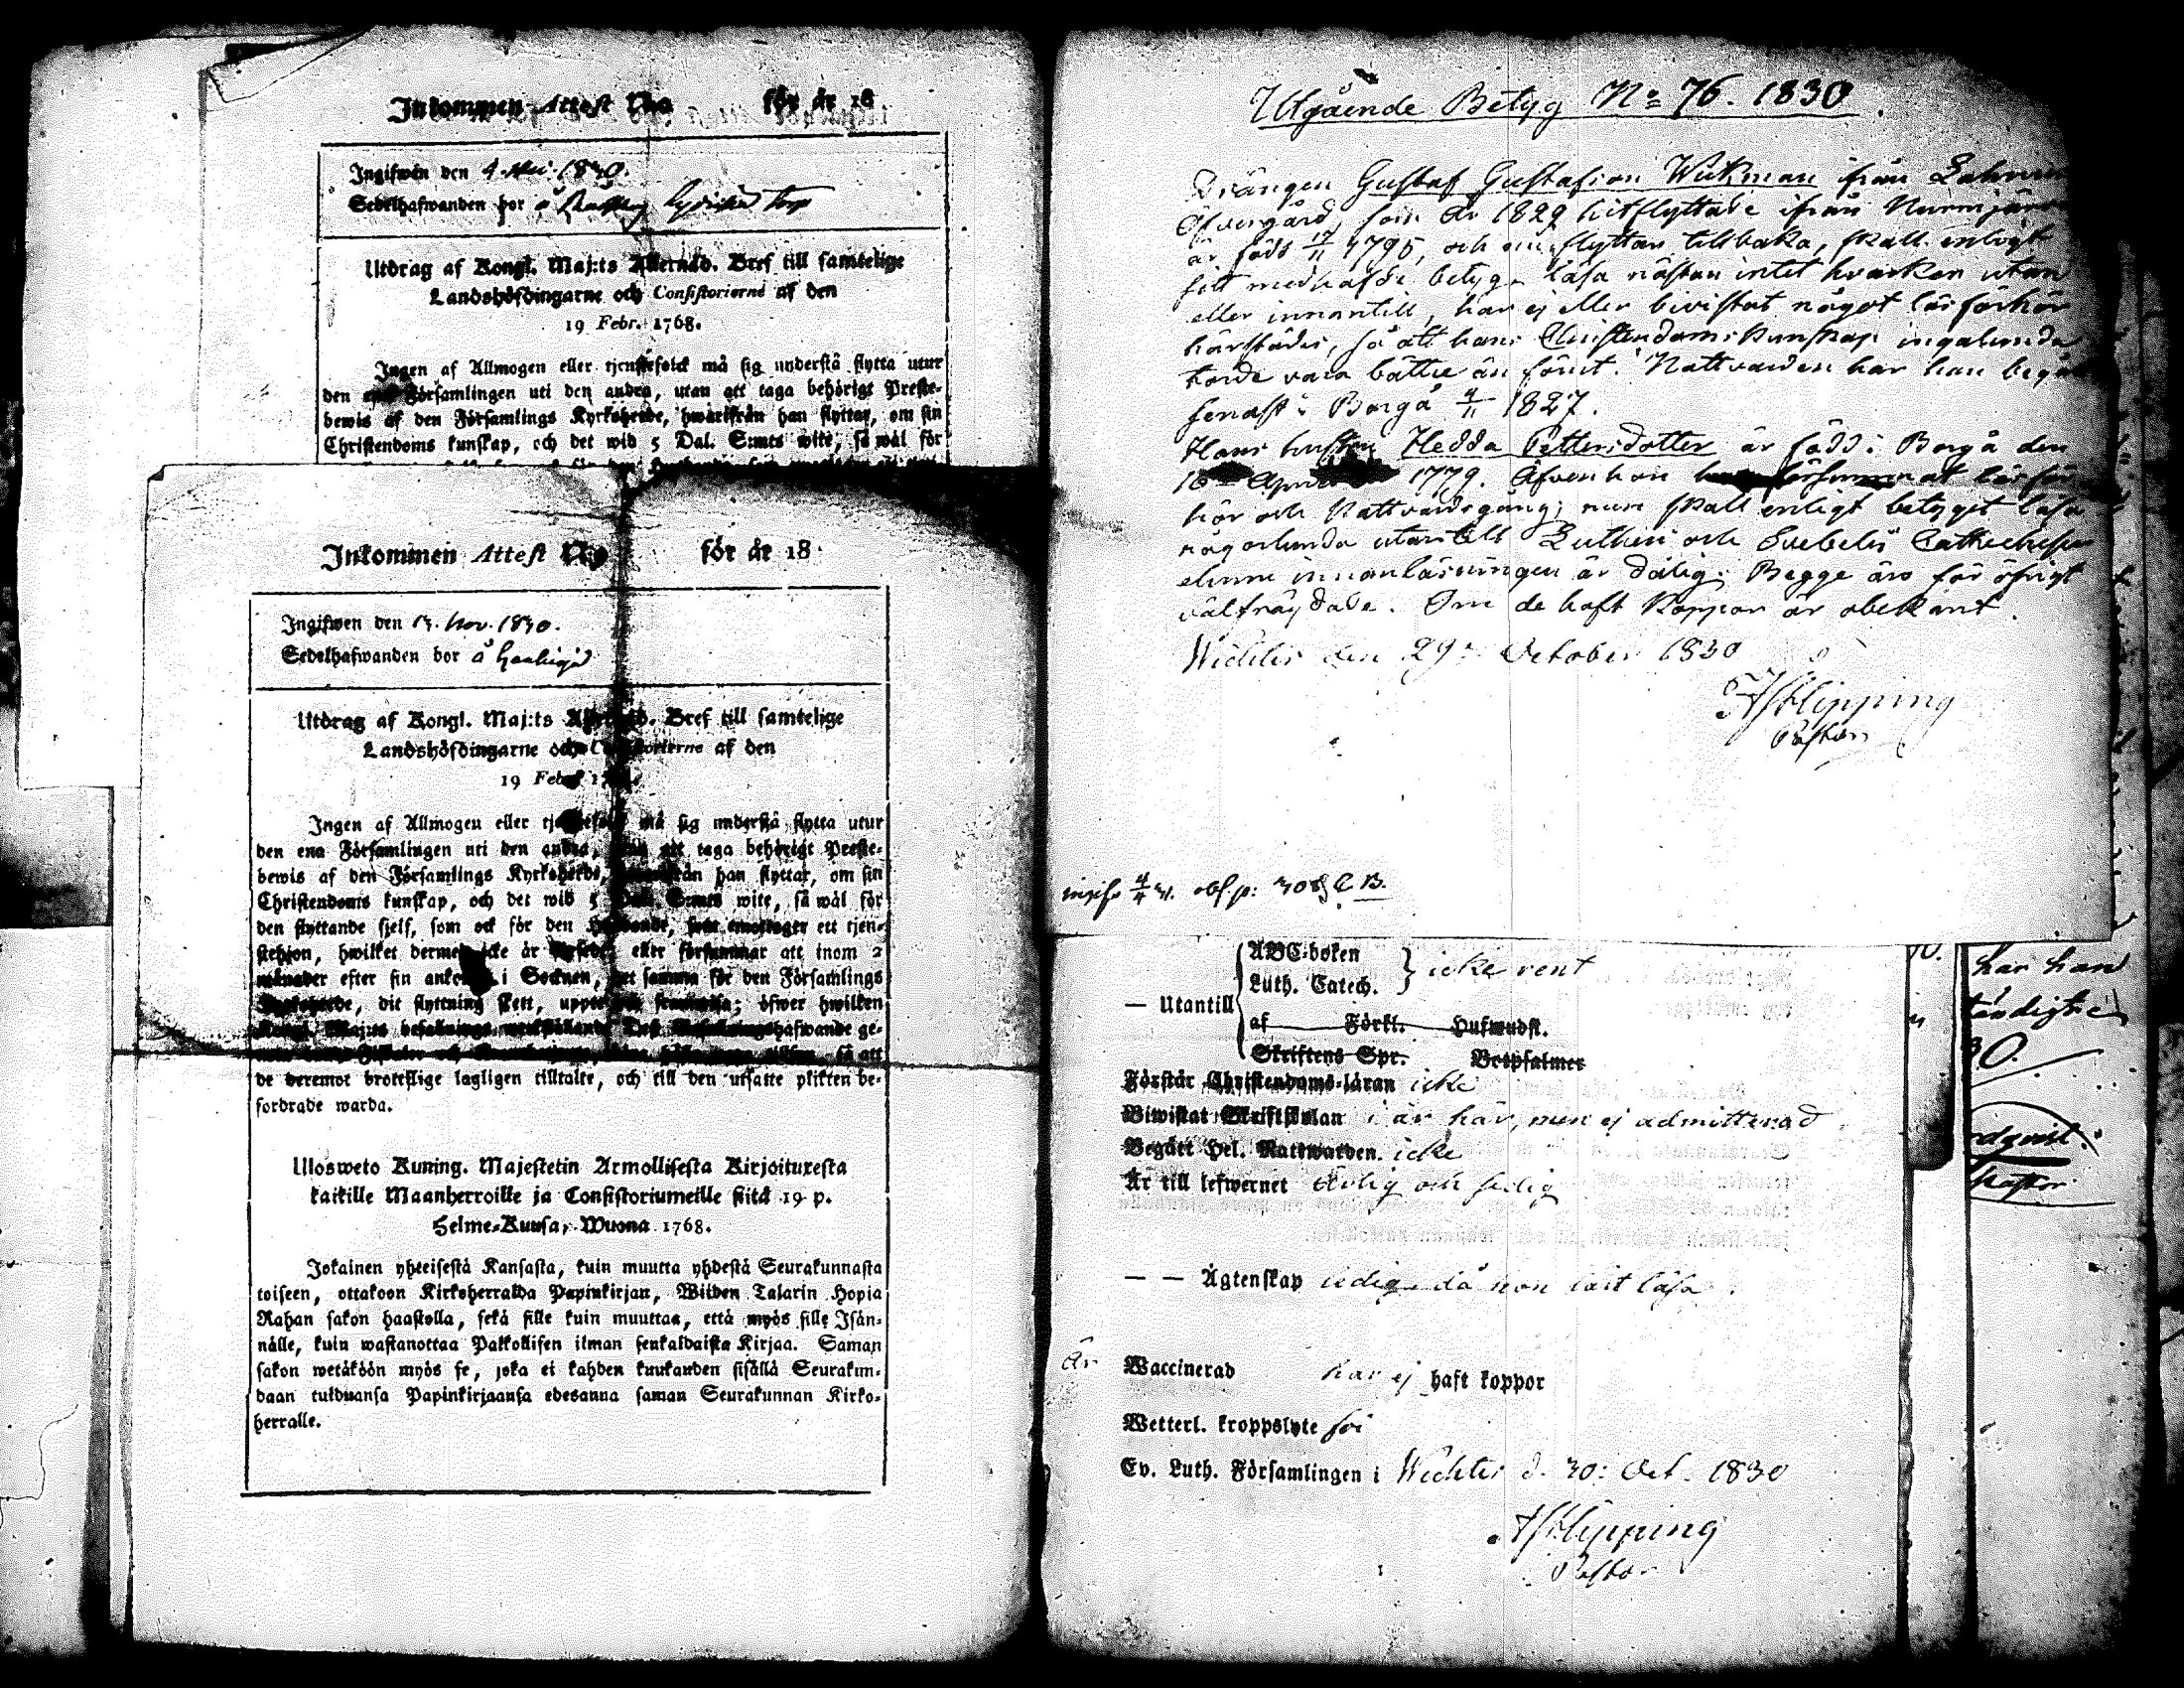 Inkommen Attest No för år 18
Ingifwen den 4. 1830.
Sedelhafwanden bor å
Utdrag af Kongl. Maj:ts Allernåd. Bref till samtelige
Landshöfdingarne och Consistorierne af den
19 Febr. 1768.
Ingen af Allmogen eller tjenstefolck må sig understå flytta utur
den Församlingen uti den andra, utan att taga behörigt Preste-
bewis af den Församlings Kyrkoherde, hwarifrån han flyttar, om sin
Christendoms kunskap, och det wid 5 Dal. S:mts wite, så wäl för
Inkommen Attest No för år 18
Ingifwen den 13. Nov. 1830.
Sedelhafwanden bor å
Utdrag af Kongl. Maj:ts Bref till samtelige
Landshöfdingarne och Consistorierne af den
19 Feb
Ingen af Allmogen eller må sig understå flytta utur
den ena Församlingen uti den andra, att taga behörigt Preste-
bewis af den Församlings Kyrkoherde, han flyttar, om sin
Christendoms kunskap, och det wid 5 S:mts wite, så wäl för
den flyttande sjelf, som ock för den som emottager ett tjen-
stehjon, hwilket dermed icke är eller försummar att inom 2
månader efter sin i Socknen, samma för den Församlings
dit flyttning skett, öfwer hwilken
befallnings hafwande ge-
så att
de deremot brottslige lagligen tilltalte, och till den utsatte plikten be-
fordrade warda.
Ulosweto Kuning. Majestetin Armollisesta Kirjoituxesta
kaikille Maanherroille ja Consistoriumeille siitä 19 p.
Helme-Kuusa, Wuona 1768.
Jokainen yhteisestä Kansasta, kuin muutta yhdestä Seurakunnasta
toiseen, ottakoon Kirkoherralda Papinkirjan, Wiiden Talarin Hopia
Rahan sakon haastolla, sekä sille kuin muuttaa, että myös sille Isän-
nälle, kuin wastanottaa Palkollisen ilman senkaldaista Kirjaa. Saman
sakon wetäköön myös se, joka ei kahden kuukauden sisällä Seurakun-
daan tulduansa Papinkirjaansa edesanna saman Seurakunnan Kirko-
herralle.
Utgående Betyg No 76. 1830
Drängen Gustaf Gustafsson Wikman från
Öfvergård, som år 1829 hitflyttade ifrån
är född 17/11 1795, och nu flyttar tillbaka, skall enligt
sitt medhafde betyg läsa nästan intet hvarken utan
eller innantill, har ej eller bivistat något läsförhör
härstädes, så att hans Christendoms kunskap ingalunda
torde vara bättre än förut. Nattvarden har han
senast i Borgå 4/11 1827.
Hans hustru Hedda Pettersdotter är född i Borgå den
16 April 1779. Äfven hon försummat
hör och Nattvardsgång; men skall enligt betyget läsa
någorlunda utantill Lutheri och Svebelii
innanläsningen är dålig. Begge äro för öfrigt
välfräjdade. Om de haft Koppor är obekant.
Wichtis den 29: October 1830
Pastor
C B.
— Utantill
ABC-boken
Luth. Catech.
icke rent
af Förkl. Hufwudst.
Skriftens Spr. Botpsalmer
Förstår Christendoms-läran icke
Biwistat Skriftskolan i år här, men ej admitterad
Begått Hel. Nattwarden icke
Är till lefwernet ärlig och
— — Ägtenskap ledig, då hon lärt läsa
är Waccinerad har ej haft koppor
Wetterl. kroppslyte fri
Ev. Luth. Församlingen i Wichtis d. 30: Oct. 1830
Pastor
har han
0.
Pastor